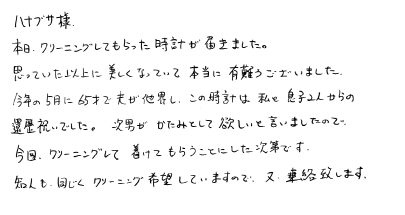 ハナブサ様.
本日、クリーニングしてもらった時計が届きました。
思っていた以上に美しくなっていて本当に有難うございました.
今年の5月に65才で夫が他界し、この時計は私と息子2人からの
還暦祝いでした。次男がかたみとして欲しいと言いましたので
今回、クリーニングして着けてもらうことにした次第です.
知人も同じくクリーニング希望していますので、又、連絡致します.